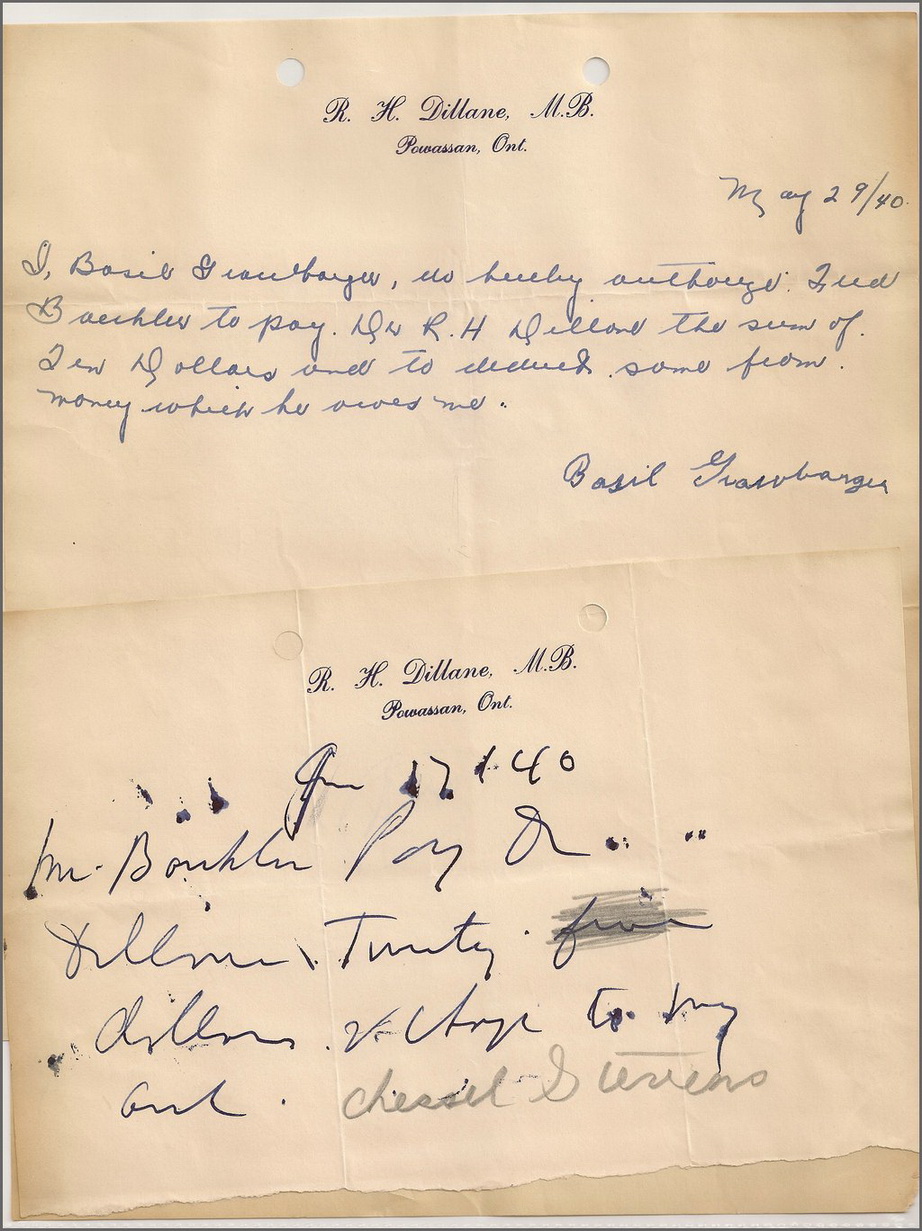 R. H. Dillane, M.B.
Powassan, Ont.
May 29/40.
I, Basil Grawbarger, do hereby authorize Fred
Buechler to pay. Dr R. H Dillane the sum of.
Ten Dollars and to deduct same from.
money which he owes me.
Basil Grawbarger
R. H. Dillane, M.B.
Powassan, Ont.
17 / 40
Mr. Pay Dr
Dillane Twenty. five
dollars & charge to my
acct. Stevens